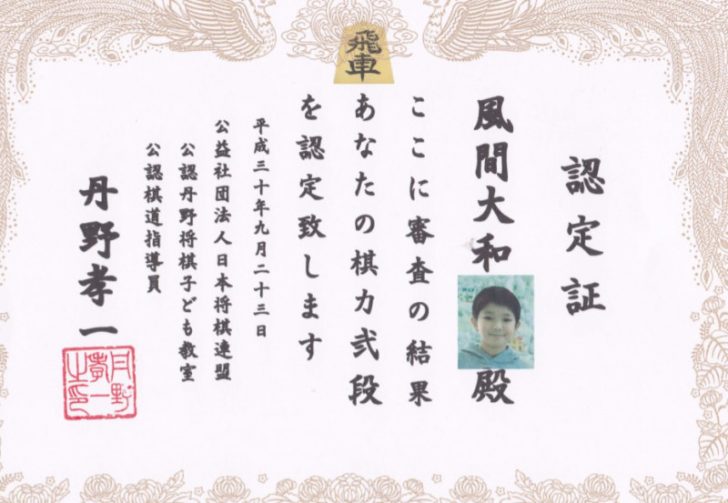 飛車
認定証
風間大和殿
ここに審査の結果
あなたの棋力弐段
を認定致します
平成三十年九月二十三日
公益社団法人日本将棋連盟
公認丹野将棋子ども教室
公認棋道指導員
丹野孝一